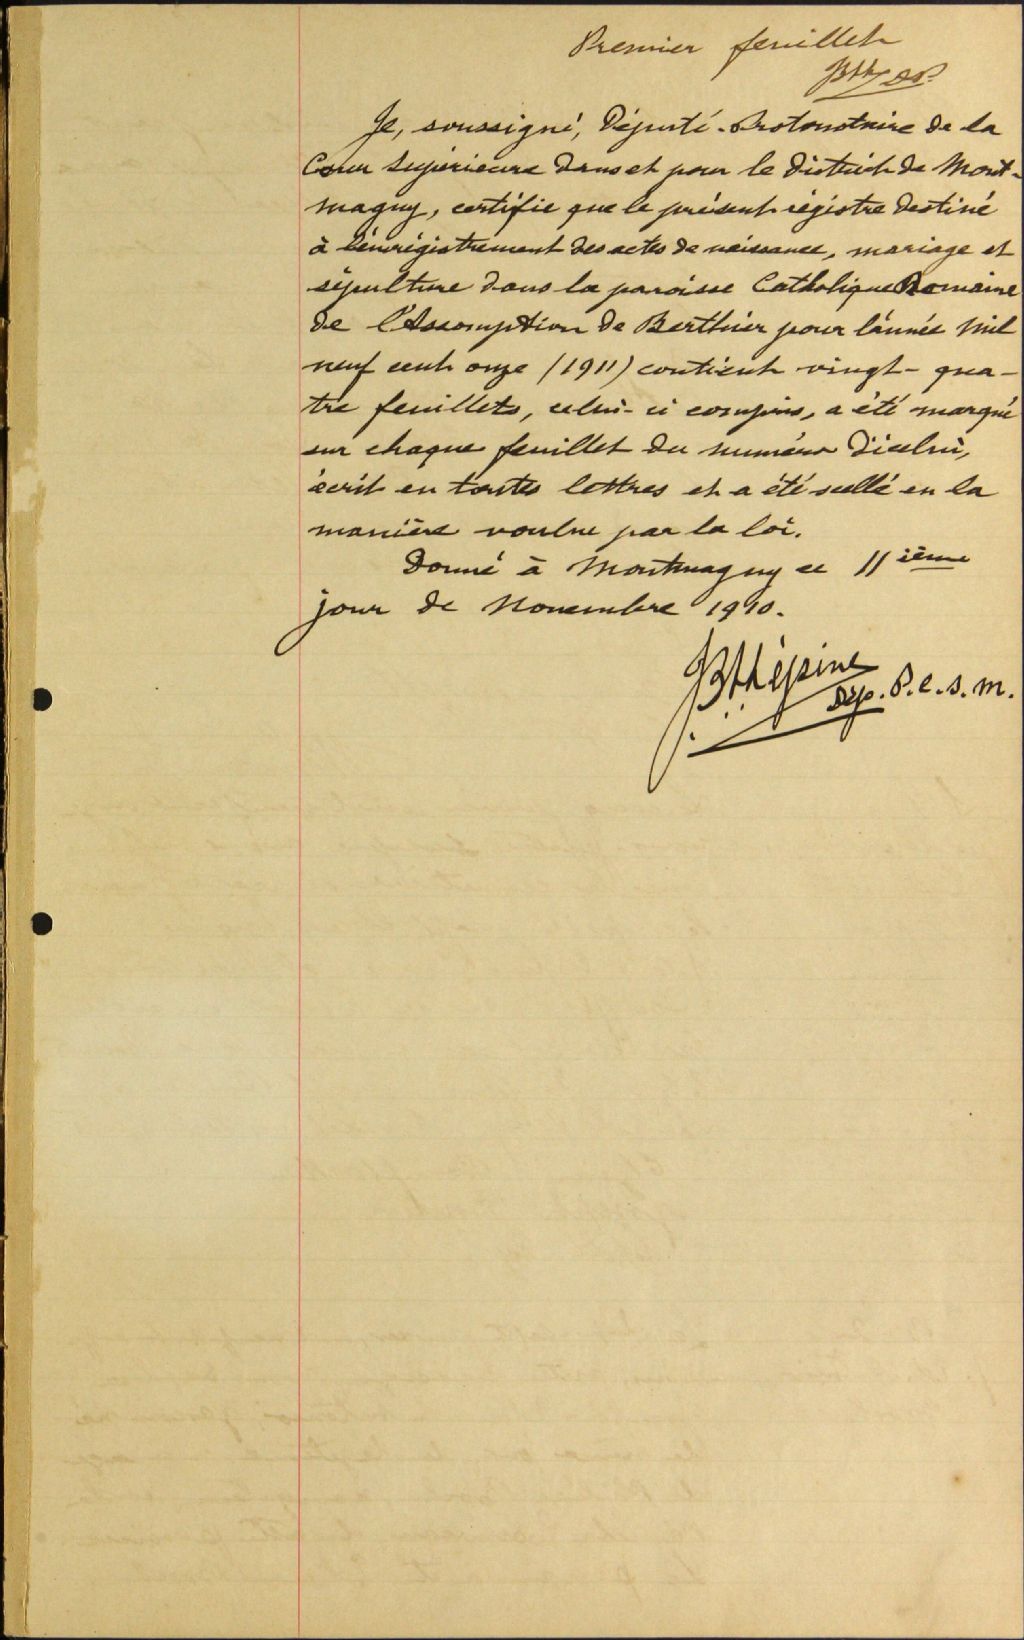 Premier feuillet
Je, soussigné, Député-Protonotaire de la
Cour Supérieure dans et pour le District de Mont-
magny, certifie que le présent régistre destiné
à l'enrégistrement des actes de naissance, mariage et
sépulture dans la paroisse Catholique Romaine
de l'Assomption de Berthier pour l'année mil
neuf cent onze (1911) contient vingt-qua-
tre feuillets, celui-ci compris, a été marqué
sur chaque feuillet du numéro d'icelui,
écrit en toutes lettres et a été scellé en la
manière voulue par la loi.
Donné à Montmagny ce 11ième
jour de Novembre 1910.
Lépine
Dép. P.C.S.M.